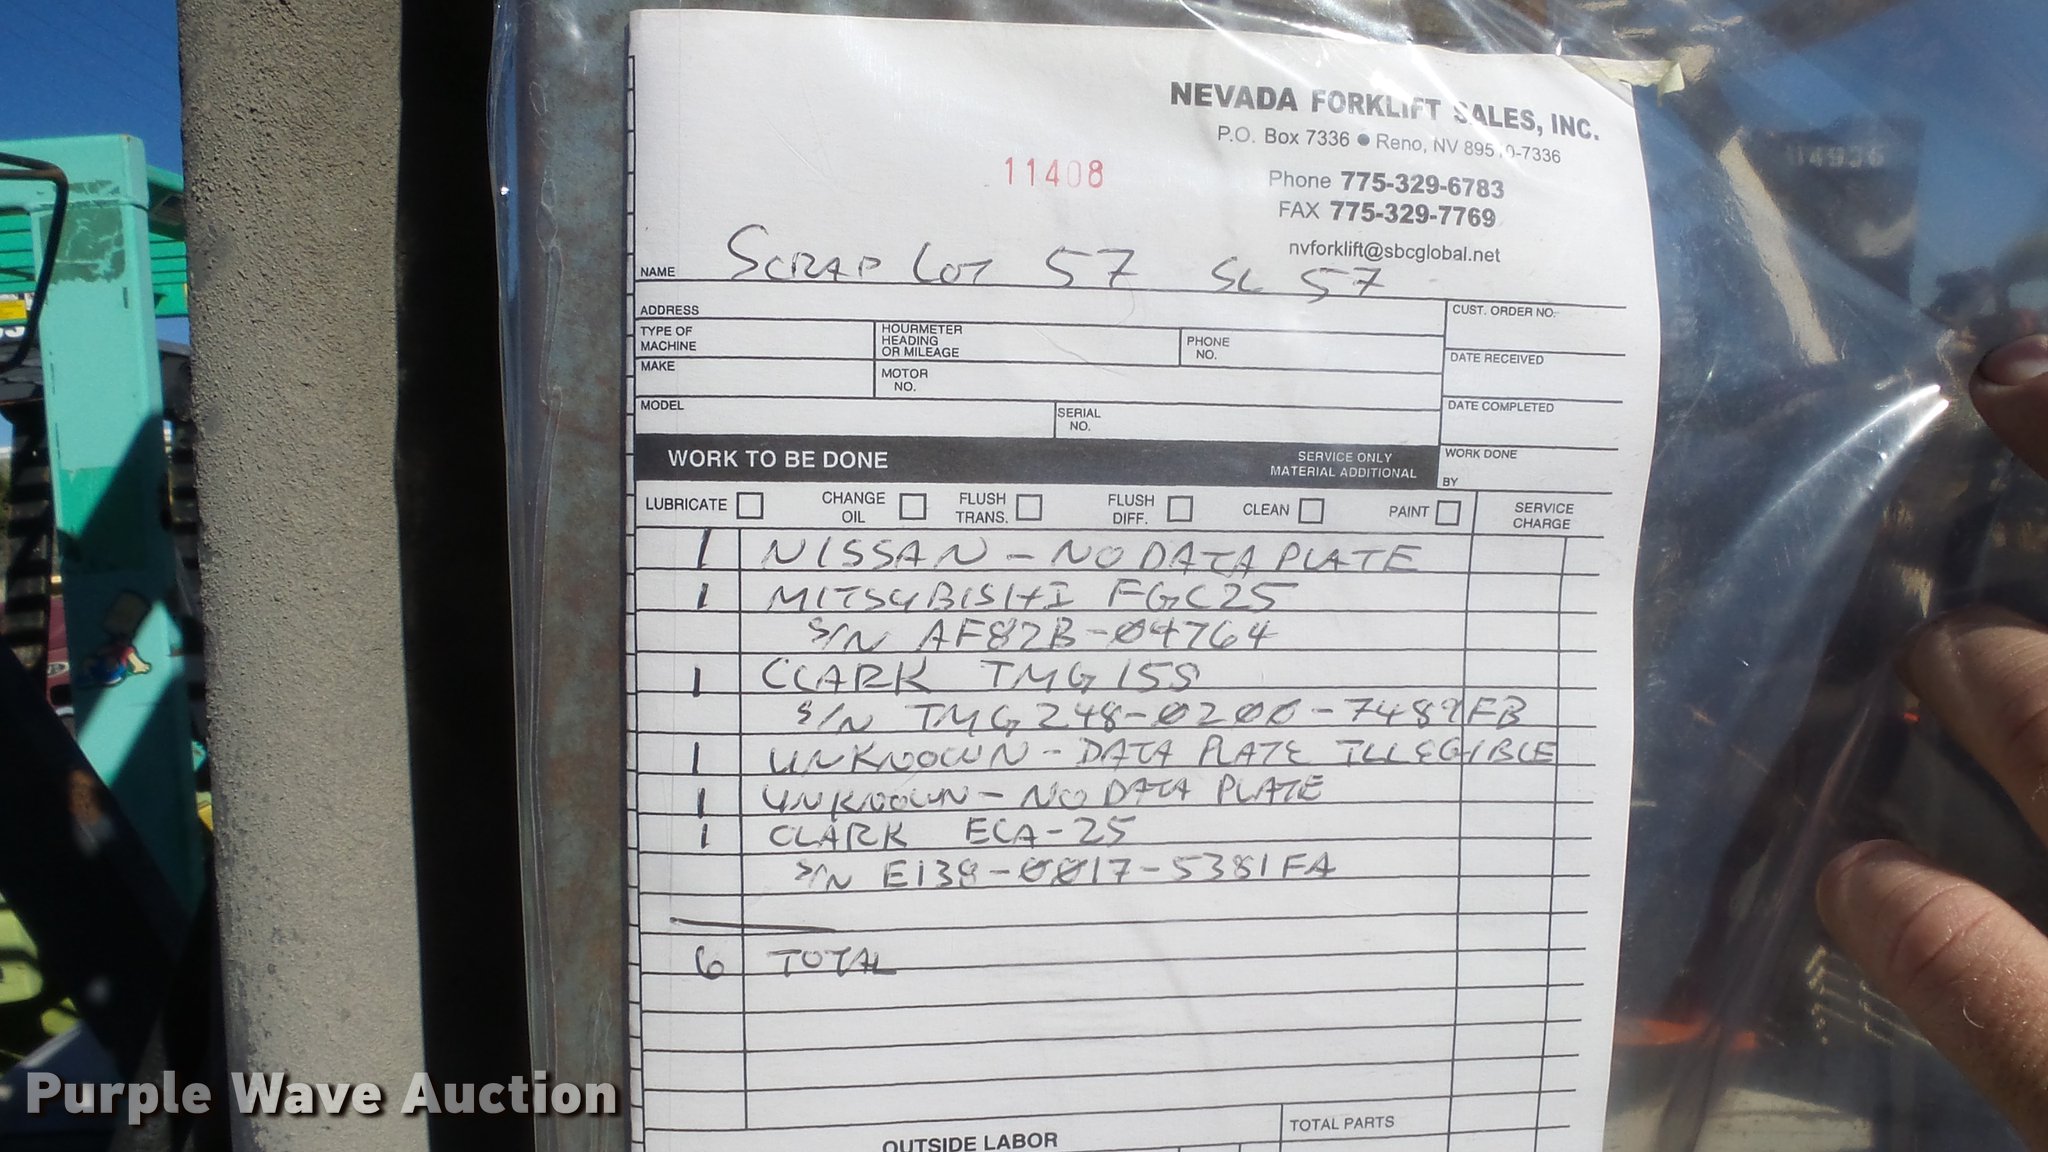 NEVADA FORKLIFT SALES, INC.
P.O. Box 7336 ● Reno, NV 89510-7336
11408
Phone 775-329-6783
FAX 775-329-7769
nvforklift@sbcglobal.net
NAME SCRAP LOT 57 SL 57
ADDRESS
CUST. ORDER NO.
TYPE OF MACHINE
HOURMETER HEADING OR MILEAGE
PHONE NO.
DATE RECEIVED
MAKE
MOTOR NO.
MODEL
SERIAL NO.
DATE COMPLETED
WORK TO BE DONE
SERVICE ONLY
MATERIAL ADDITIONAL
WORK DONE
BY
LUBRICATE
CHANGE OIL
FLUSH TRANS.
FLUSH DIFF.
CLEAN
PAINT
SERVICE CHARGE
1 NISSAN - NO DATA PLATE
1 MITSUBISHI FGC25
S/N AF82B-04764
1 CLARK TMG15S
S/N TMG248-0200-7489FB
1 UNKNOWN - DATA PLATE ILLEGIBLE
1 UNKNOWN - NO DATA PLATE
1 CLARK ECA-25
S/N E138-0017-5381FA
6 TOTAL
TOTAL PARTS
OUTSIDE LABOR
Purple Wave Auction